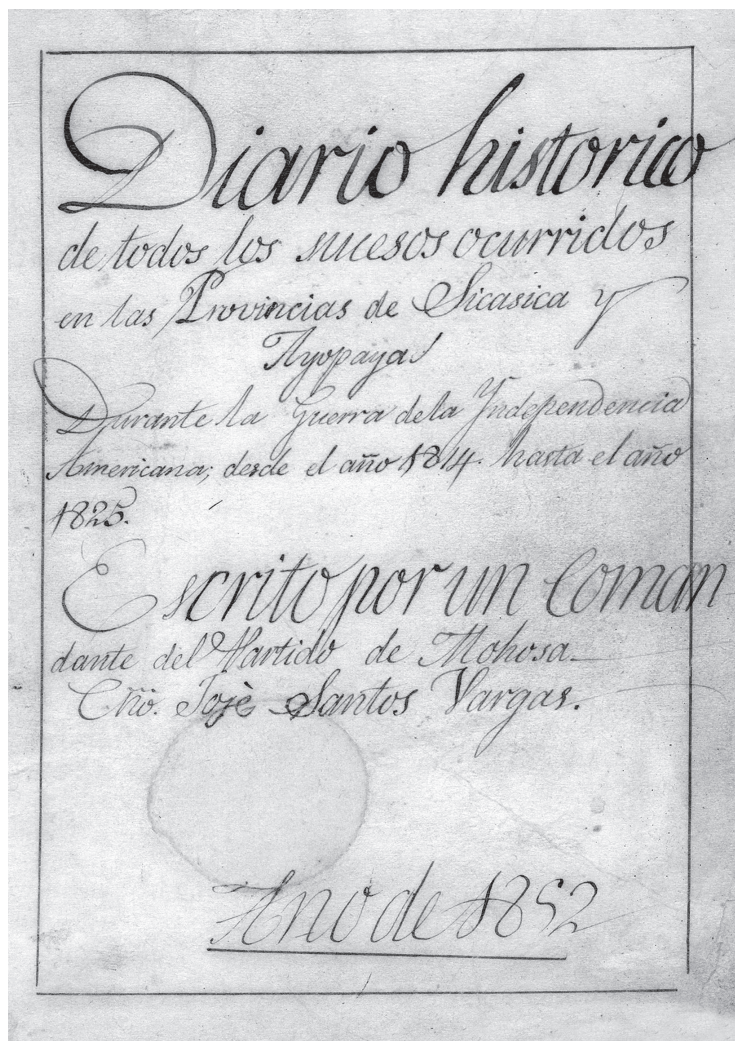 Diario historico
de todos los sucesos ocurridos
en las Provincias de Sicasica y
Ayopaya
Durante la Guerra dela Yndependencia
Americana; desde el año 1814. hasta el año
1825.
Escrito por un Coman
dante del Partido de Mohosa
Cño. José Santos Vargas.
Ano de 1852